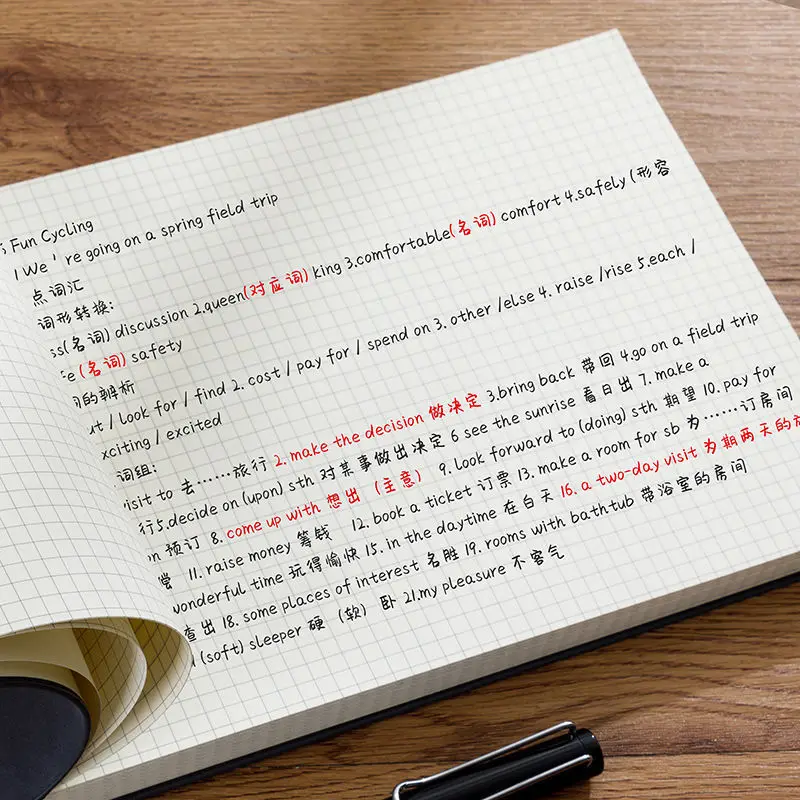 Fun Cycling
We're going on a spring field trip
点词汇
词形转换:
(名词) discussion 2.queen(对应词) king 3.comfortable(名词) comfort 4.safely (形容
(名词) safety
的辨析
/ look for / find 2. cost / pay for / spend on 3. other /else 4. raise /rise 5.each /
/ excited
词组:
to 去……旅行 2. make the decision 做决定 3.bring back 带回 4.go on a field trip
行5.decide on (upon) sth 对某事做出决定 6 see the sunrise 看日出 7. make a
预订 8. come up with 想出 (主意) 9. look forward to (doing) sth 期望 10. pay for
11. raise money 筹钱 12. book a ticket 订票 13. make a room for sb 为……订房间
wonderful time 玩得愉快 15. in the daytime 在白天 16. a two-day visit 为期两天的
查出 18. some places of interest 名胜 19. rooms with bathtub 带浴室的房间
(soft) sleeper 硬 (软) 卧 21.my pleasure 不客气